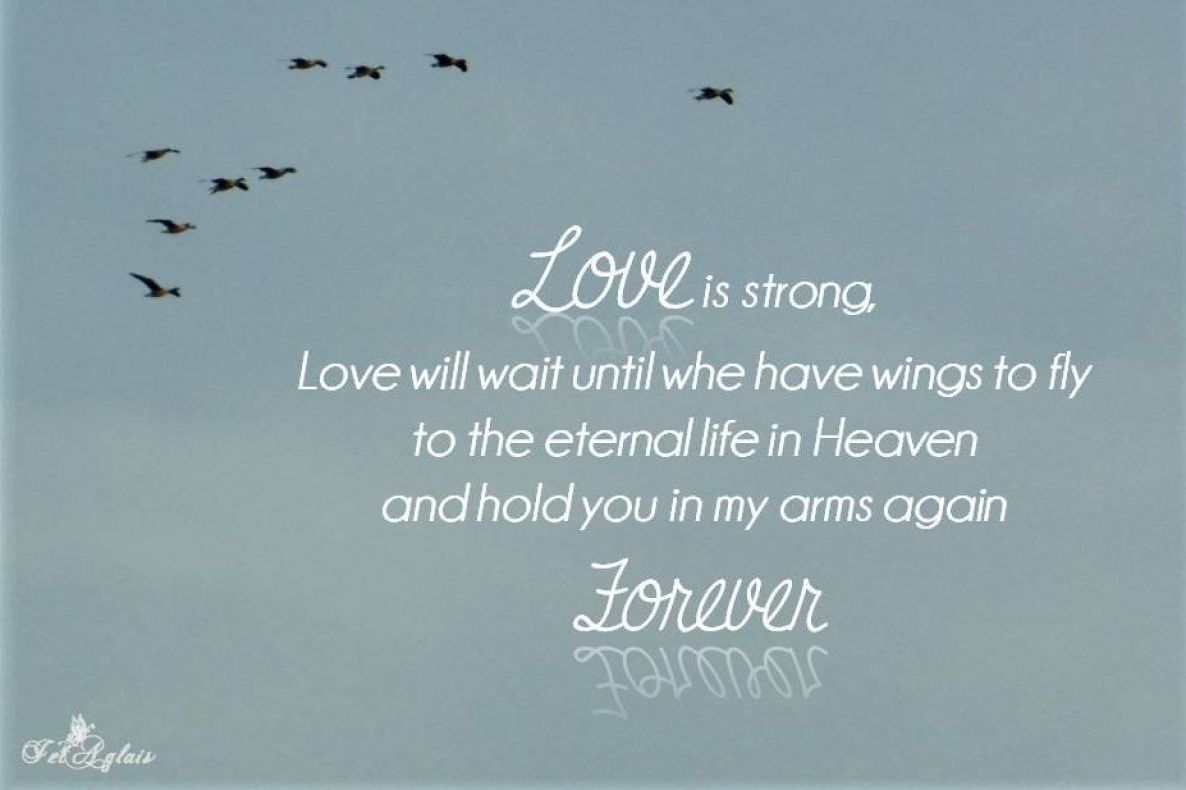 Love is strong,
Love will wait until whe have wings to fly
to the eternal life in Heaven
and hold you in my arms again
Forever